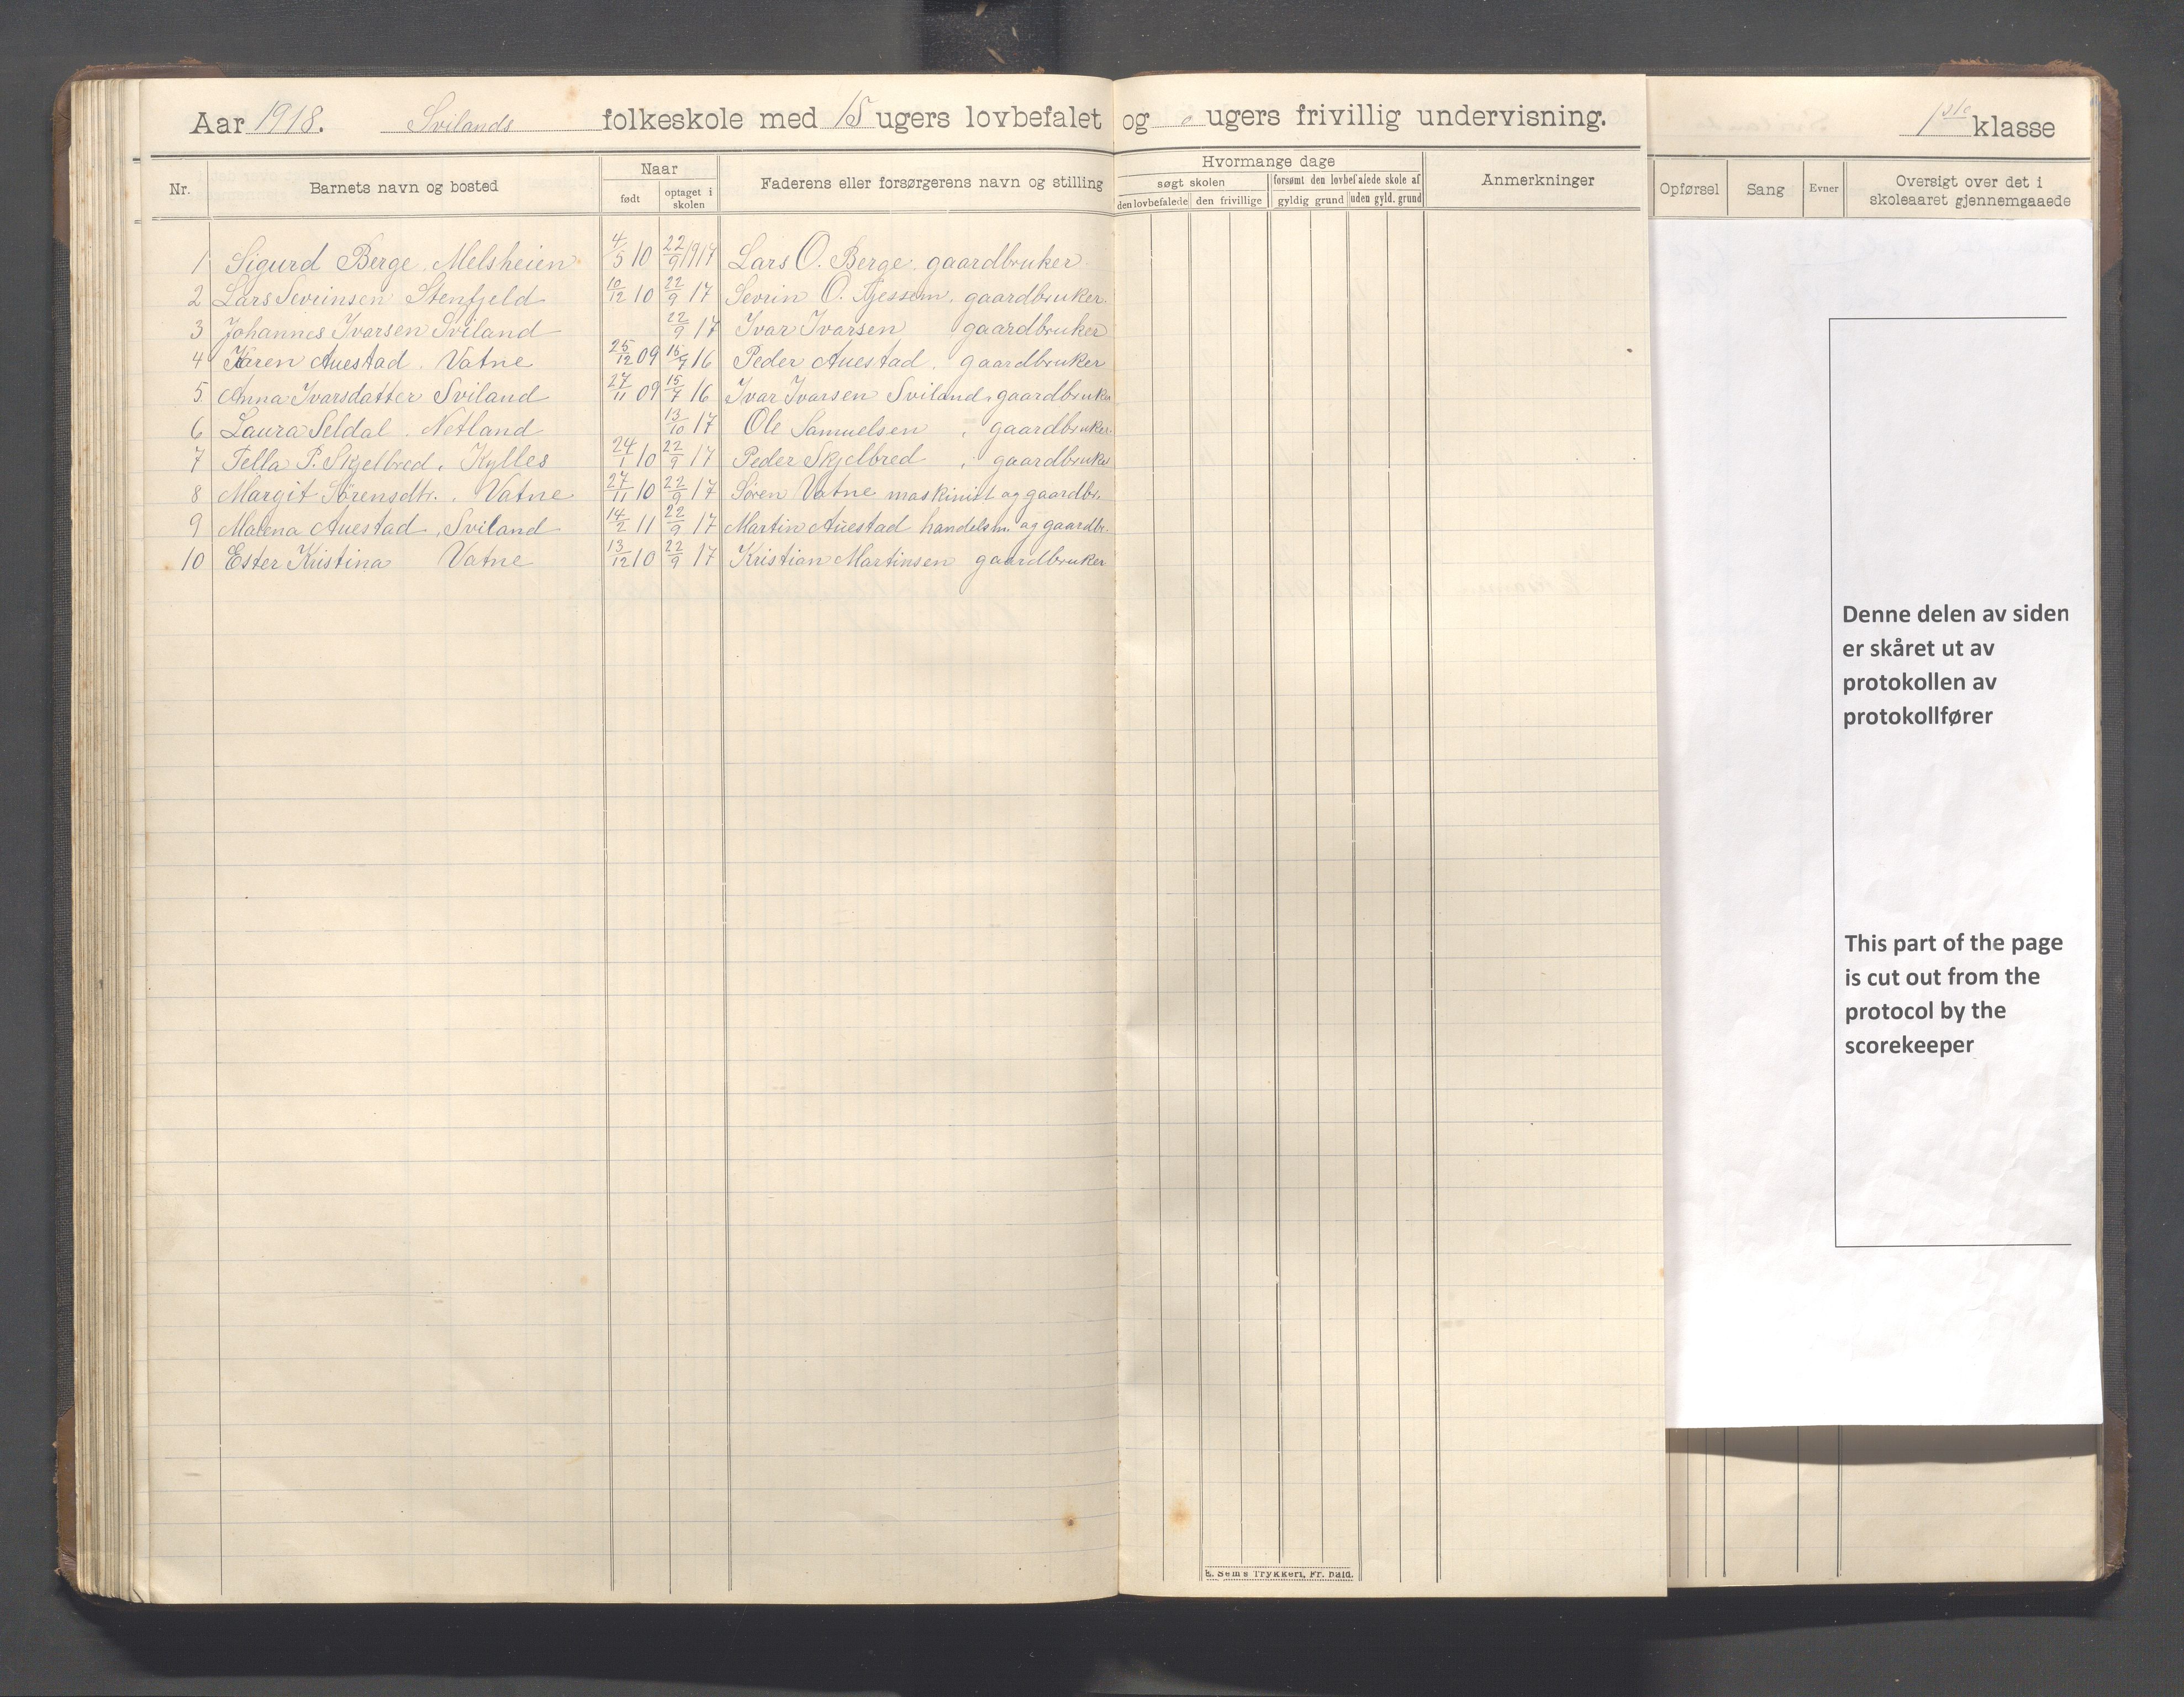 Aar 1918. Svilands folkeskole med 15 ugers lovbefalet og o ugers frivillig undervisning. 1ste klasse
Nr. Barnets navn og bosted Naar født optaget i skolen Faderens eller forsørgerens navn og stilling Hvormange dage søgt skolen den lovbefalede den frivillige forsømt den lovbefalede skole af gyldig grund uden gyld. grund Anmerkninger Opførsel Sang Evner Oversigt over det i skoleaaret gjennemgaaede
1 Sigurd Berge. Melsheien 4/5 10 22/9 1917 Lars O. Berge. gaardbruker
2 Lars Sevrinsen Stenfjeld 10/12 10 22/9 17 Sevrin O. gaardbruker.
3 Johannes Ivarsen Sviland 22/9 17 Ivar Ivarsen gaardbruker
4 Karen Auestad. Vatne 25/12 09 15/7 16 Peder Auestad. gaardbruker
5. Anna Ivarsdatter Sviland 27/11 09 15/7 16 Ivar Ivarsen Sviland, gaardbruker
6 Laura Seldal. Netland 13/10 17 Ole Samuelsen, gaardbruker.
7 Tella P. Skjelbred, Kylles 24/1 10 22/9 17 Peder Skjelbred, gaardbruker
8 Margit Sörensdtr.. Vatne 27/11 10 22/9 17 Sören Vatne maskinist og gaardbr.
9 Malena Auestad, Sviland 14/2 11 22/9 17 Martin Auestad handelsm. og gaardbr.
10 Ester Kristina Vatne 13/12 10 22/9 17 Kristian Martinsen gaardbruker
Denne delen av siden
er skåret ut av
protokollen av
protokollfører
This part of the page
is cut out from the
protocol by the
scorekeeper
E. Sem's Trykkeri, Fr. hald.